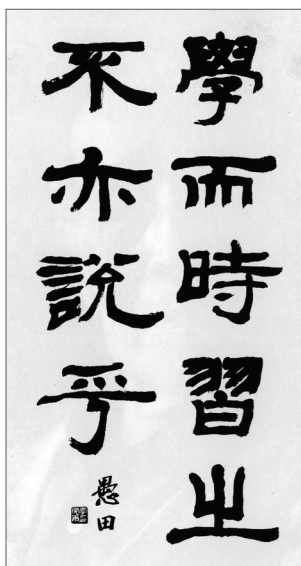 學而時習之
不亦說乎
愚田